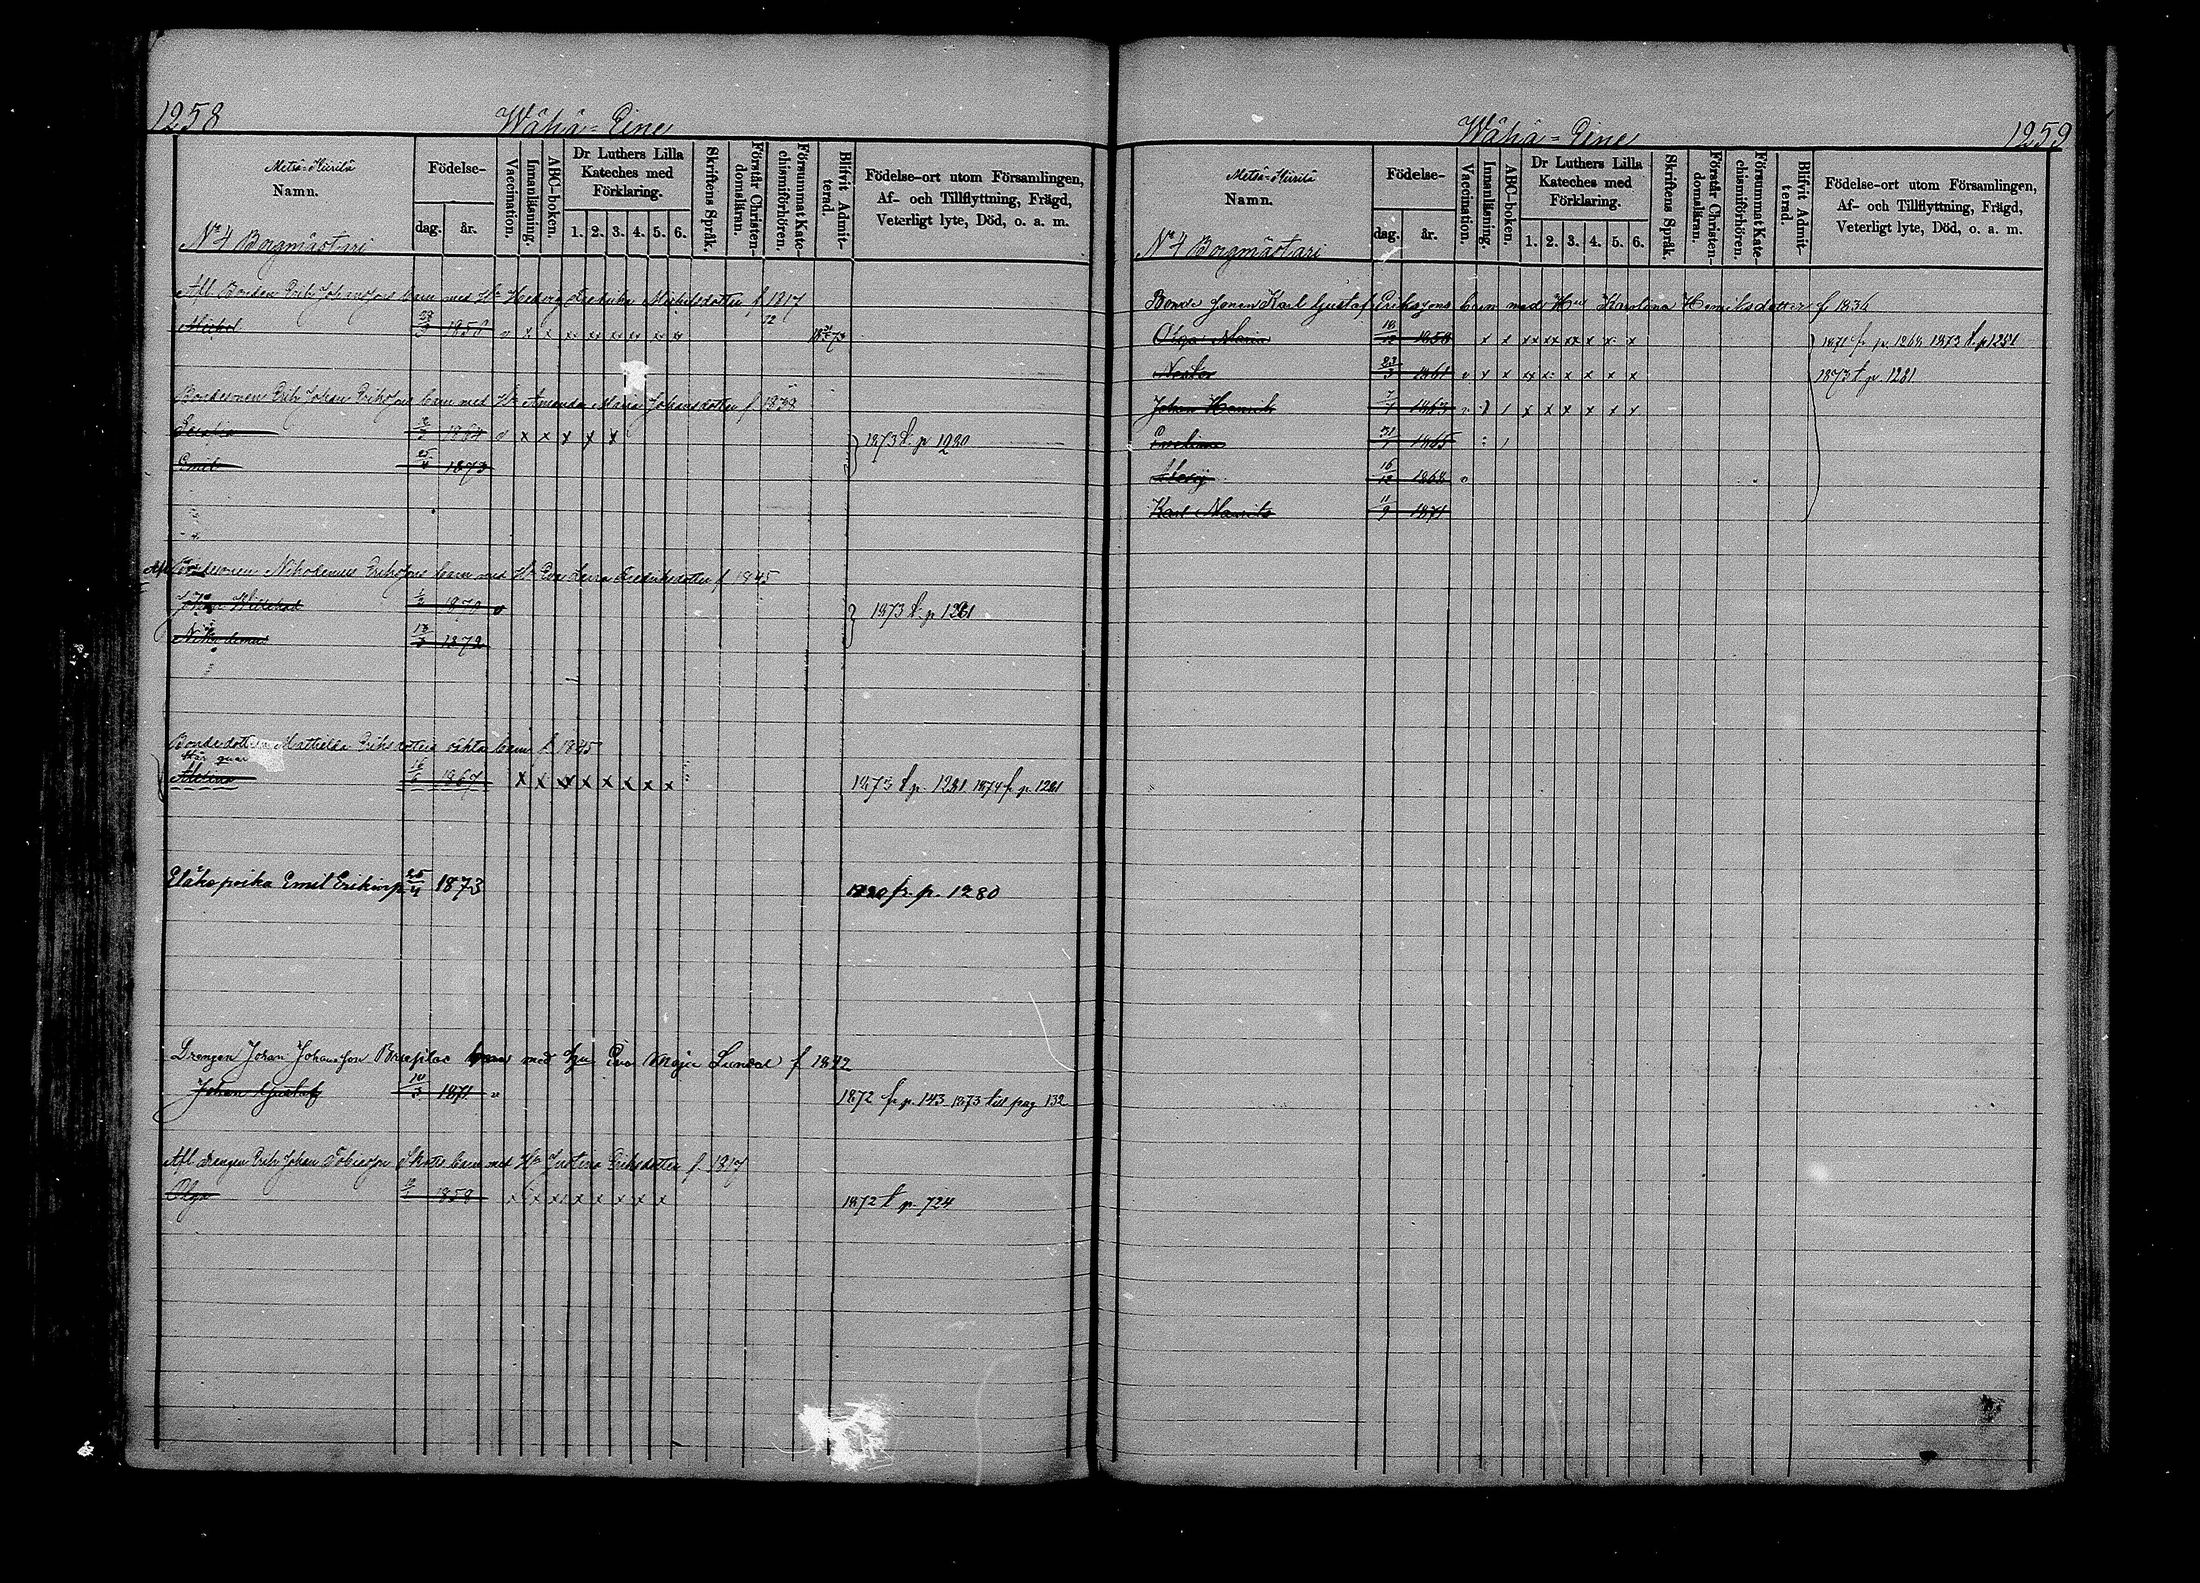 1258
Wähä=Eine
Metsä-Hiirilä
Namn.
Födelse-
dag. år.
Vaccination.
Innanläsning.
ABC-boken.
Dr Luthers Lilla
Kateches med
Förklaring.
1. 2. 3. 4. 5. 6.
Skriftens Språk.
Förstår Christen-
domsläran.
Försummat Kate-
chismiförhören.
Blifvit Admit-
terad.
Födelse-ort utom Församlingen,
Af- och Tillflyttning, Frägd,
Veterligt lyte, Död, o. a. m.
No 4 Borgmästari
Afl. Bonden Erik Johanssons barn med Hu Hedvig Fredrika Michelsdotter f 1817
Michel 1858 v x x x x x x x x
Bondesonen Erik Johan Erikssons barn med Hu Amanda Maria Johansdotter f 1838
1864 v x x x x x 1873 t. p 1280
Emil 25/4 1873
Afl Bondesonen Nikodemus Erikssons barn med Hu Eva Lovisa Fredriksdotter f 1845
Johan Willehad 1870 v 1873 t. p 1281
Nikodemus 1872
Bondedottren Mathilda Eriksdotters oäkta barn f. 1845
Här quar
16/6 1867 x x x x x x x x 1873 t p. 1281. 1874 fr p. 1281
Eläke poika Emil Erikinp. 25/4 1873 1880 fr. p. 1280
Drengen Johan Johansson barn med Hu Eva Maja Lundal f 1842
Johan Gustaf 10/3 1871 v 1872 fr p. 143 1873 till pag 132
Afl drengen Erik Johan Tobiasson Skotte barn med Hu Justina Eriksdotter f. 1817
Olga 1858 x x x x x x x x 1872 t p. 724
Wähä=Eine
1259
Metsä-Hiirilä
Namn.
Födelse-
dag. år.
Vaccination.
Innanläsning.
ABC-boken.
Dr Luthers Lilla
Kateches med
Förklaring.
1. 2. 3. 4. 5. 6.
Skriftens Språk.
Förstår Christen-
domsläran.
Försummat Kate-
chismiförhören.
Blifvit Admit-
terad.
Födelse-ort utom Församlingen,
Af- och Tillflyttning, Frägd,
Veterligt lyte, Död, o. a. m.
No 4 Borgmästari
Bonde sonen Karl Gustaf Erikssons barn med Hu Karolina Henriksdotter f 1836
Olga Maria 1858 x x xx xx xx x x x 1871 fr p. 1268 1873 t. p 1281
Nestor 23/3 1861 v x x x x x x x x 1873 t p. 1281
Johan Henrik 7/7 1863 x x x x x x
Evelina 31/7 1865
16/12 1868 v
Karl Mauritz 11/9 1871